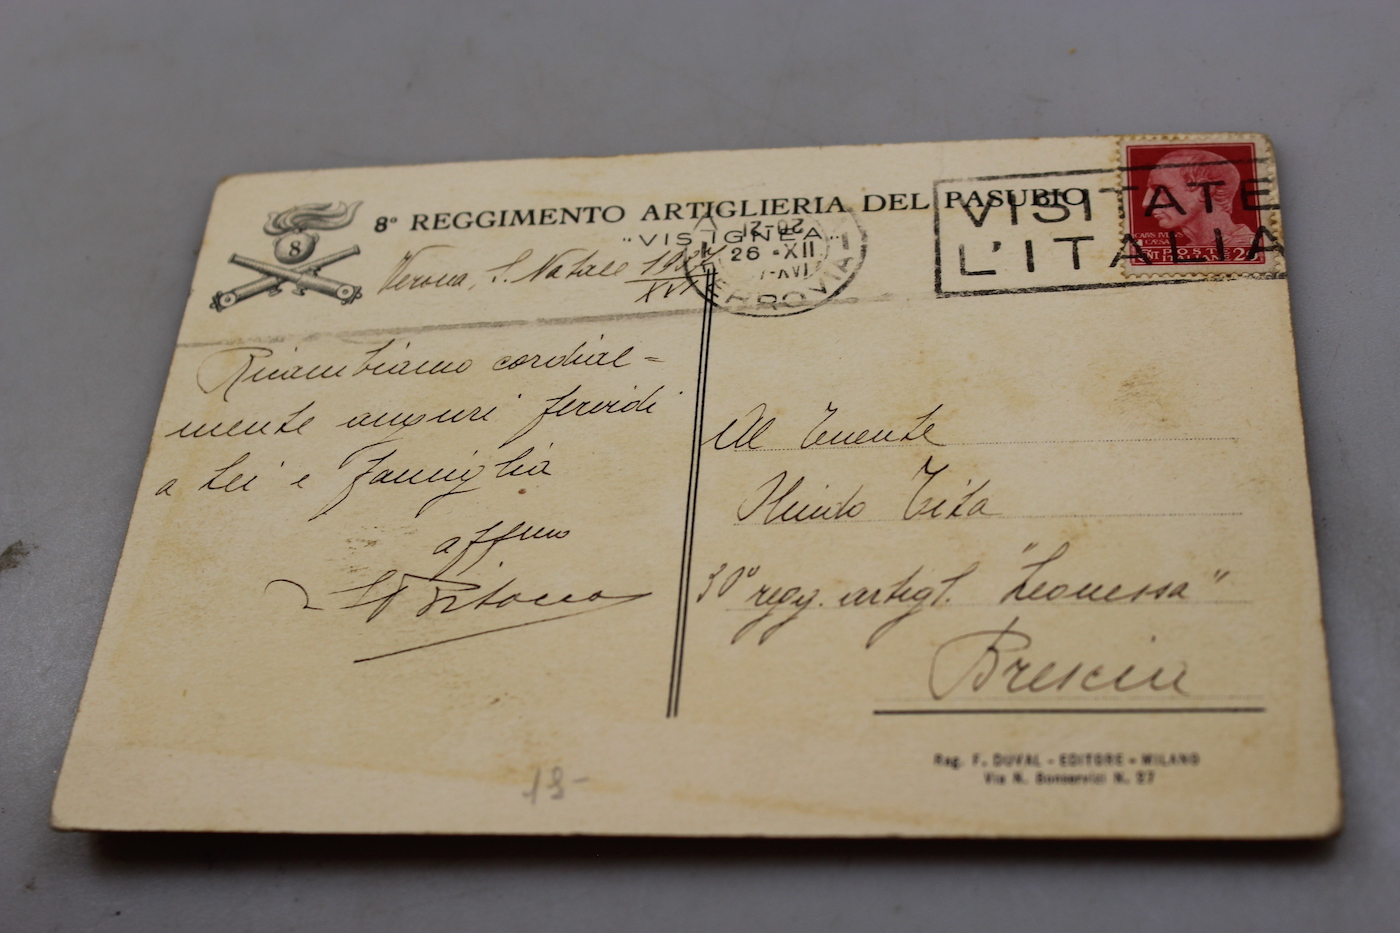 8º REGGIMENTO ARTIGLIERIA DEL PASUBIO
8
"VISIGNEA"
Verona, S. Natale
XVI
20-21
26 •XII
-XVI
FERROVIA
VISITATE
L'ITALIA
POSTE
ITALIANE
Ricambiamo cordial=
mente auguri fervidi
a Lei e famiglia
affmo
Al Tenente
Tita
30º regg. artigl. "Leonessa"
Brescia
Rag. F. DUVAL - EDITORE - MILANO
Via N. Bonservizi N. 27